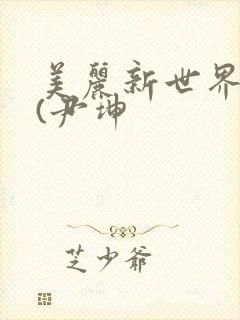 美麗新世界
(尹坤
芝少爺